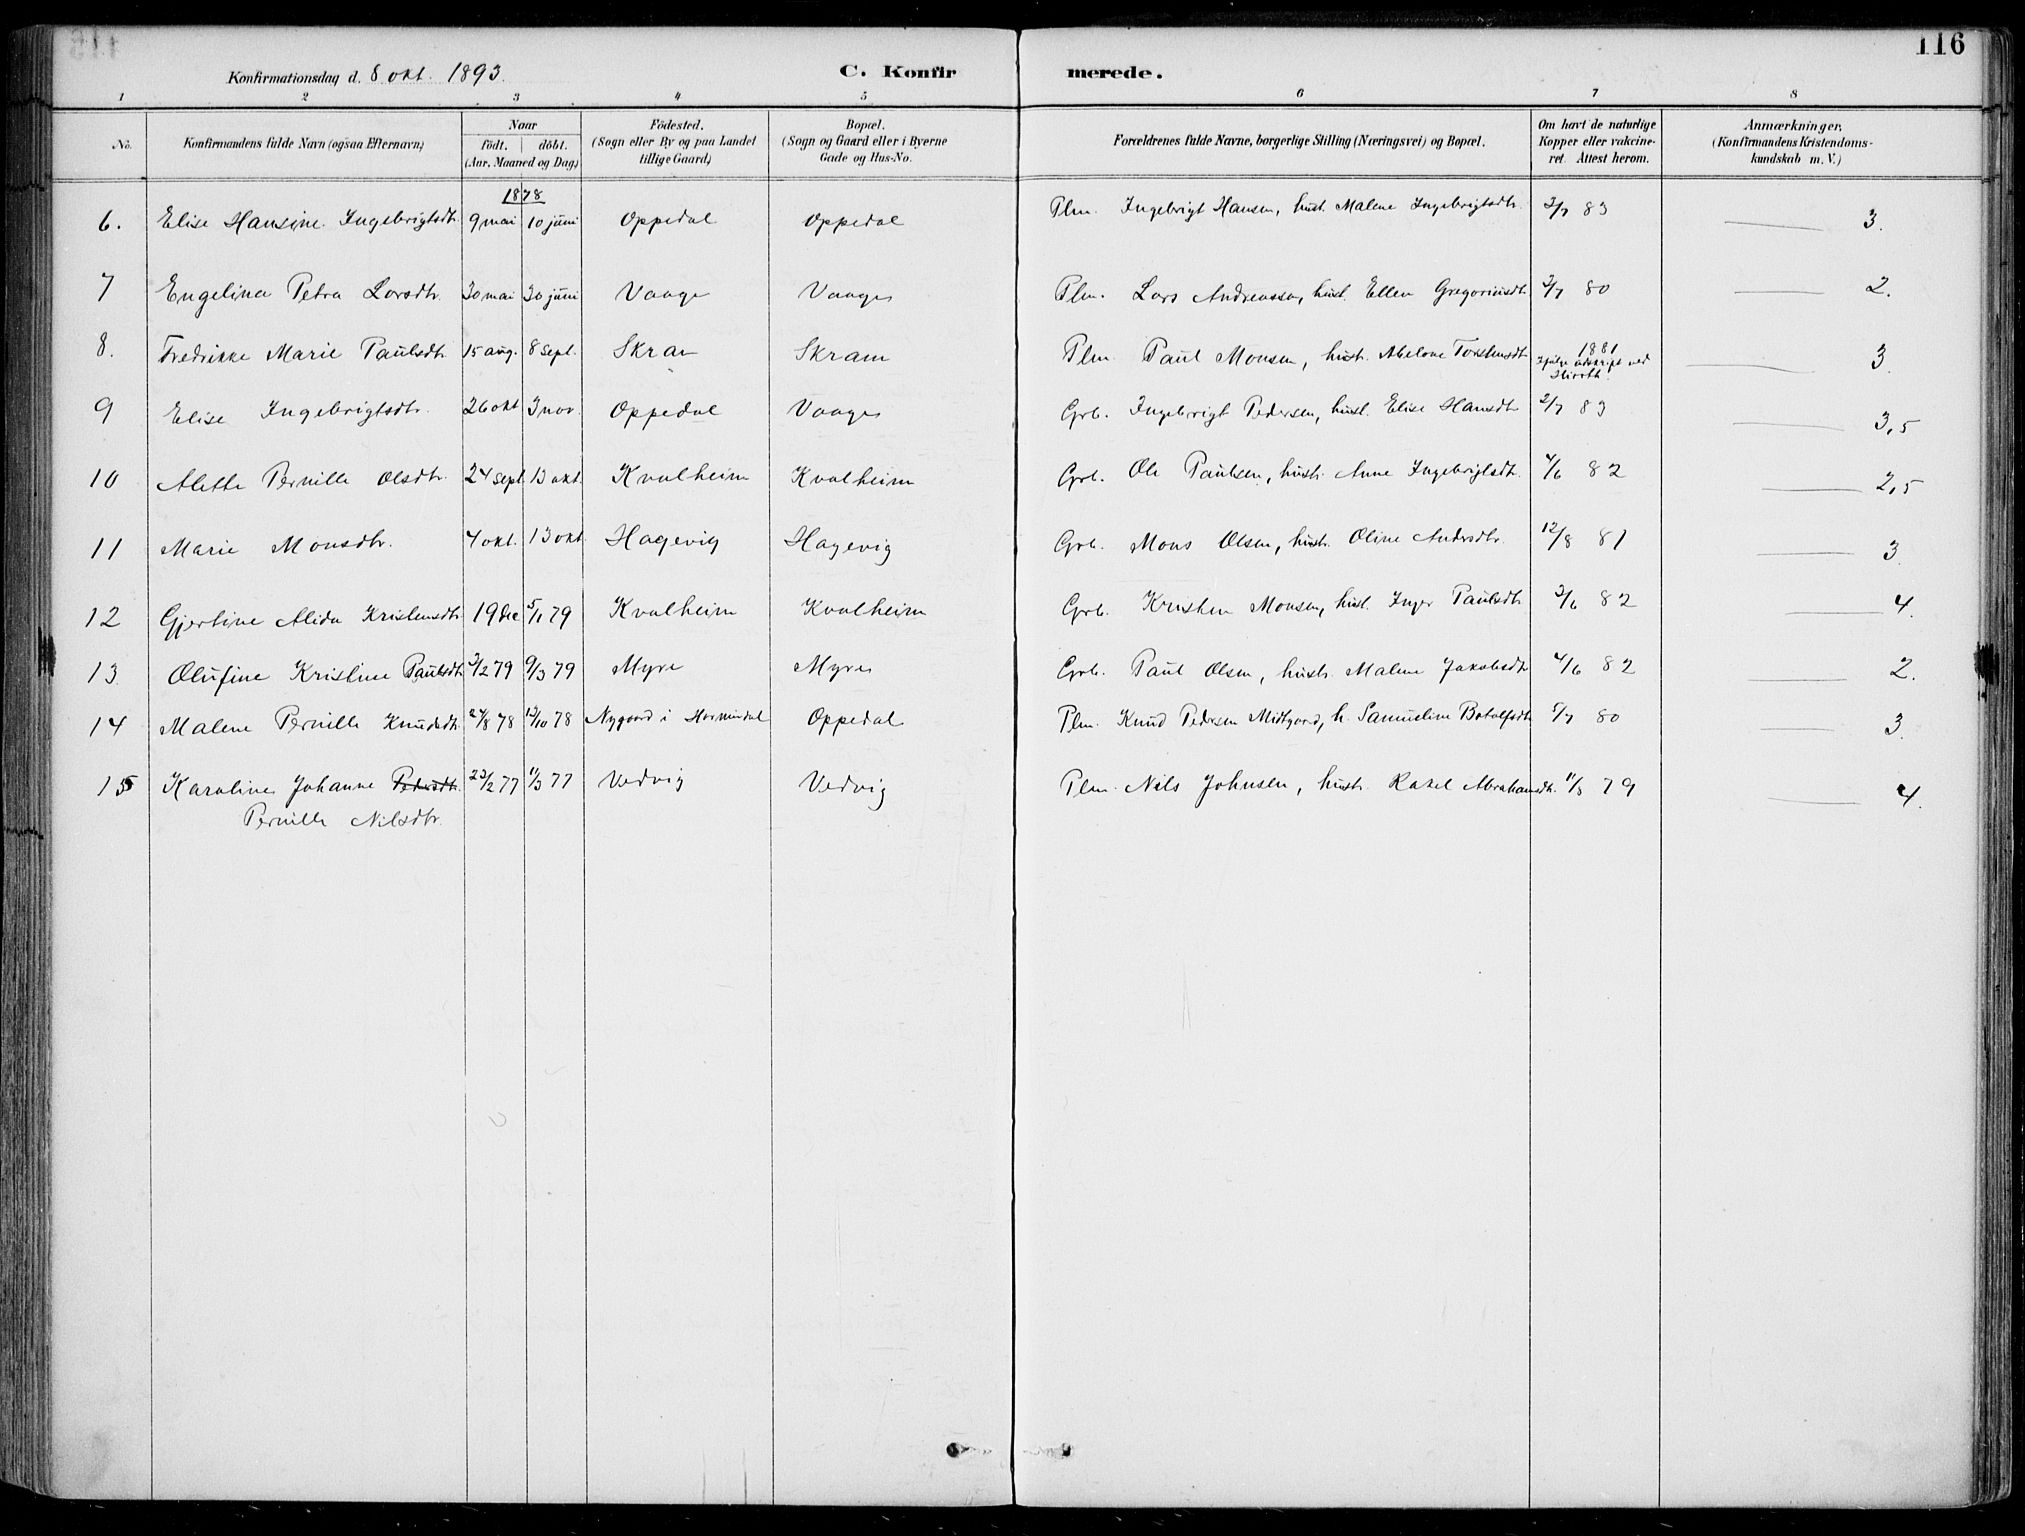 116
Konfirmationsdag d. 8 okt. 1893.
C. Konfirmerede.
1 2 3 4 5 6 7 8
No. Konfirmandens fulde Navn (ogsaa Efternavn) Naar født. døbt. (Aar, Maaned og Dag) Fødested. (Sogn eller By og paa Landet tillige Gaard) Bopæl. (Sogn og Gaard eller i Byerne Gade og Hus-No. Forældrenes fulde Navne, borgerlige Stilling (Næringsvei) og Bopæl. Om havt de naturlige Kopper eller vakcineret. Attest herom. Anmærkninger. (Konfirmandens Kristendomskundskab m. V.)
1878
6. Elise Hansine Ingebrigtsdtr. 9 mai 10 juni Oppedal Oppedal Plm. Ingebrigt Hansen, hust. Malene Ingebrigtsdtr. 2/7 83 3.
7 Engelina Petra Larsdtr. 30 mai 30 juni Vaage Vaage Plm. Lars Andreassen, hust. Ellen Gregoriusdtr. 2/7 80 2.
8. Fredrikke Marie Paulsdtr. 15 aug. 8 sept. Skram Skram Plm Paul Monsen, hust. Abelone Torstensdtr 1881 3
9 Elise Ingebrigtsdtr. 26 okt 3 nov. Oppedal Vaage Grb. Ingebrigt Pedersen, hust. Elise Hansdtr 2/7 83 3,5
10 Alette Pernille Olsdtr. 24 sept. 13 okt. Kvalheim Kvalheim Grb. Ole Paulsen, hustr. Anne Ingebrigtsdtr. 4/6 82 2,5
11 Marie Monsdtr. 4 okt. 13 okt Hagevig Hagevig Grb. Mons Olsen, hustr. Oline Andersdtr. 12/8 81 3
12 Gjertine Alida Kristensdtr. 19 dec 5/1 79 Kvalheim Kvalheim Grb. Kristen Monsen, hust. Inger Paulsdtr. 3/6 82 4.
13 Olufine Kristine Paulsdtr. 3/2 79 9/3 79 Myre Myre Grb. Paul Olsen, hustr. Malene Jakobsdtr 4/6 82 2.
14 Malene Pernille Knudsdtr. 24/8 78 13/10 78 Nygaard i Hornindal Oppedal Plm. Knud Pedersen Midtgaard, h. Samueline Botolfsdtr 5/7 80 3.
15 Karoline Johanne Pedersdtr. 23/2 77 11/3 77 Vedvig Vedvig Plm. Nils Johnsen, hustr. Rakel Abrahamsdtr. 11/8 79 4.
Pernille Nilsdtr.